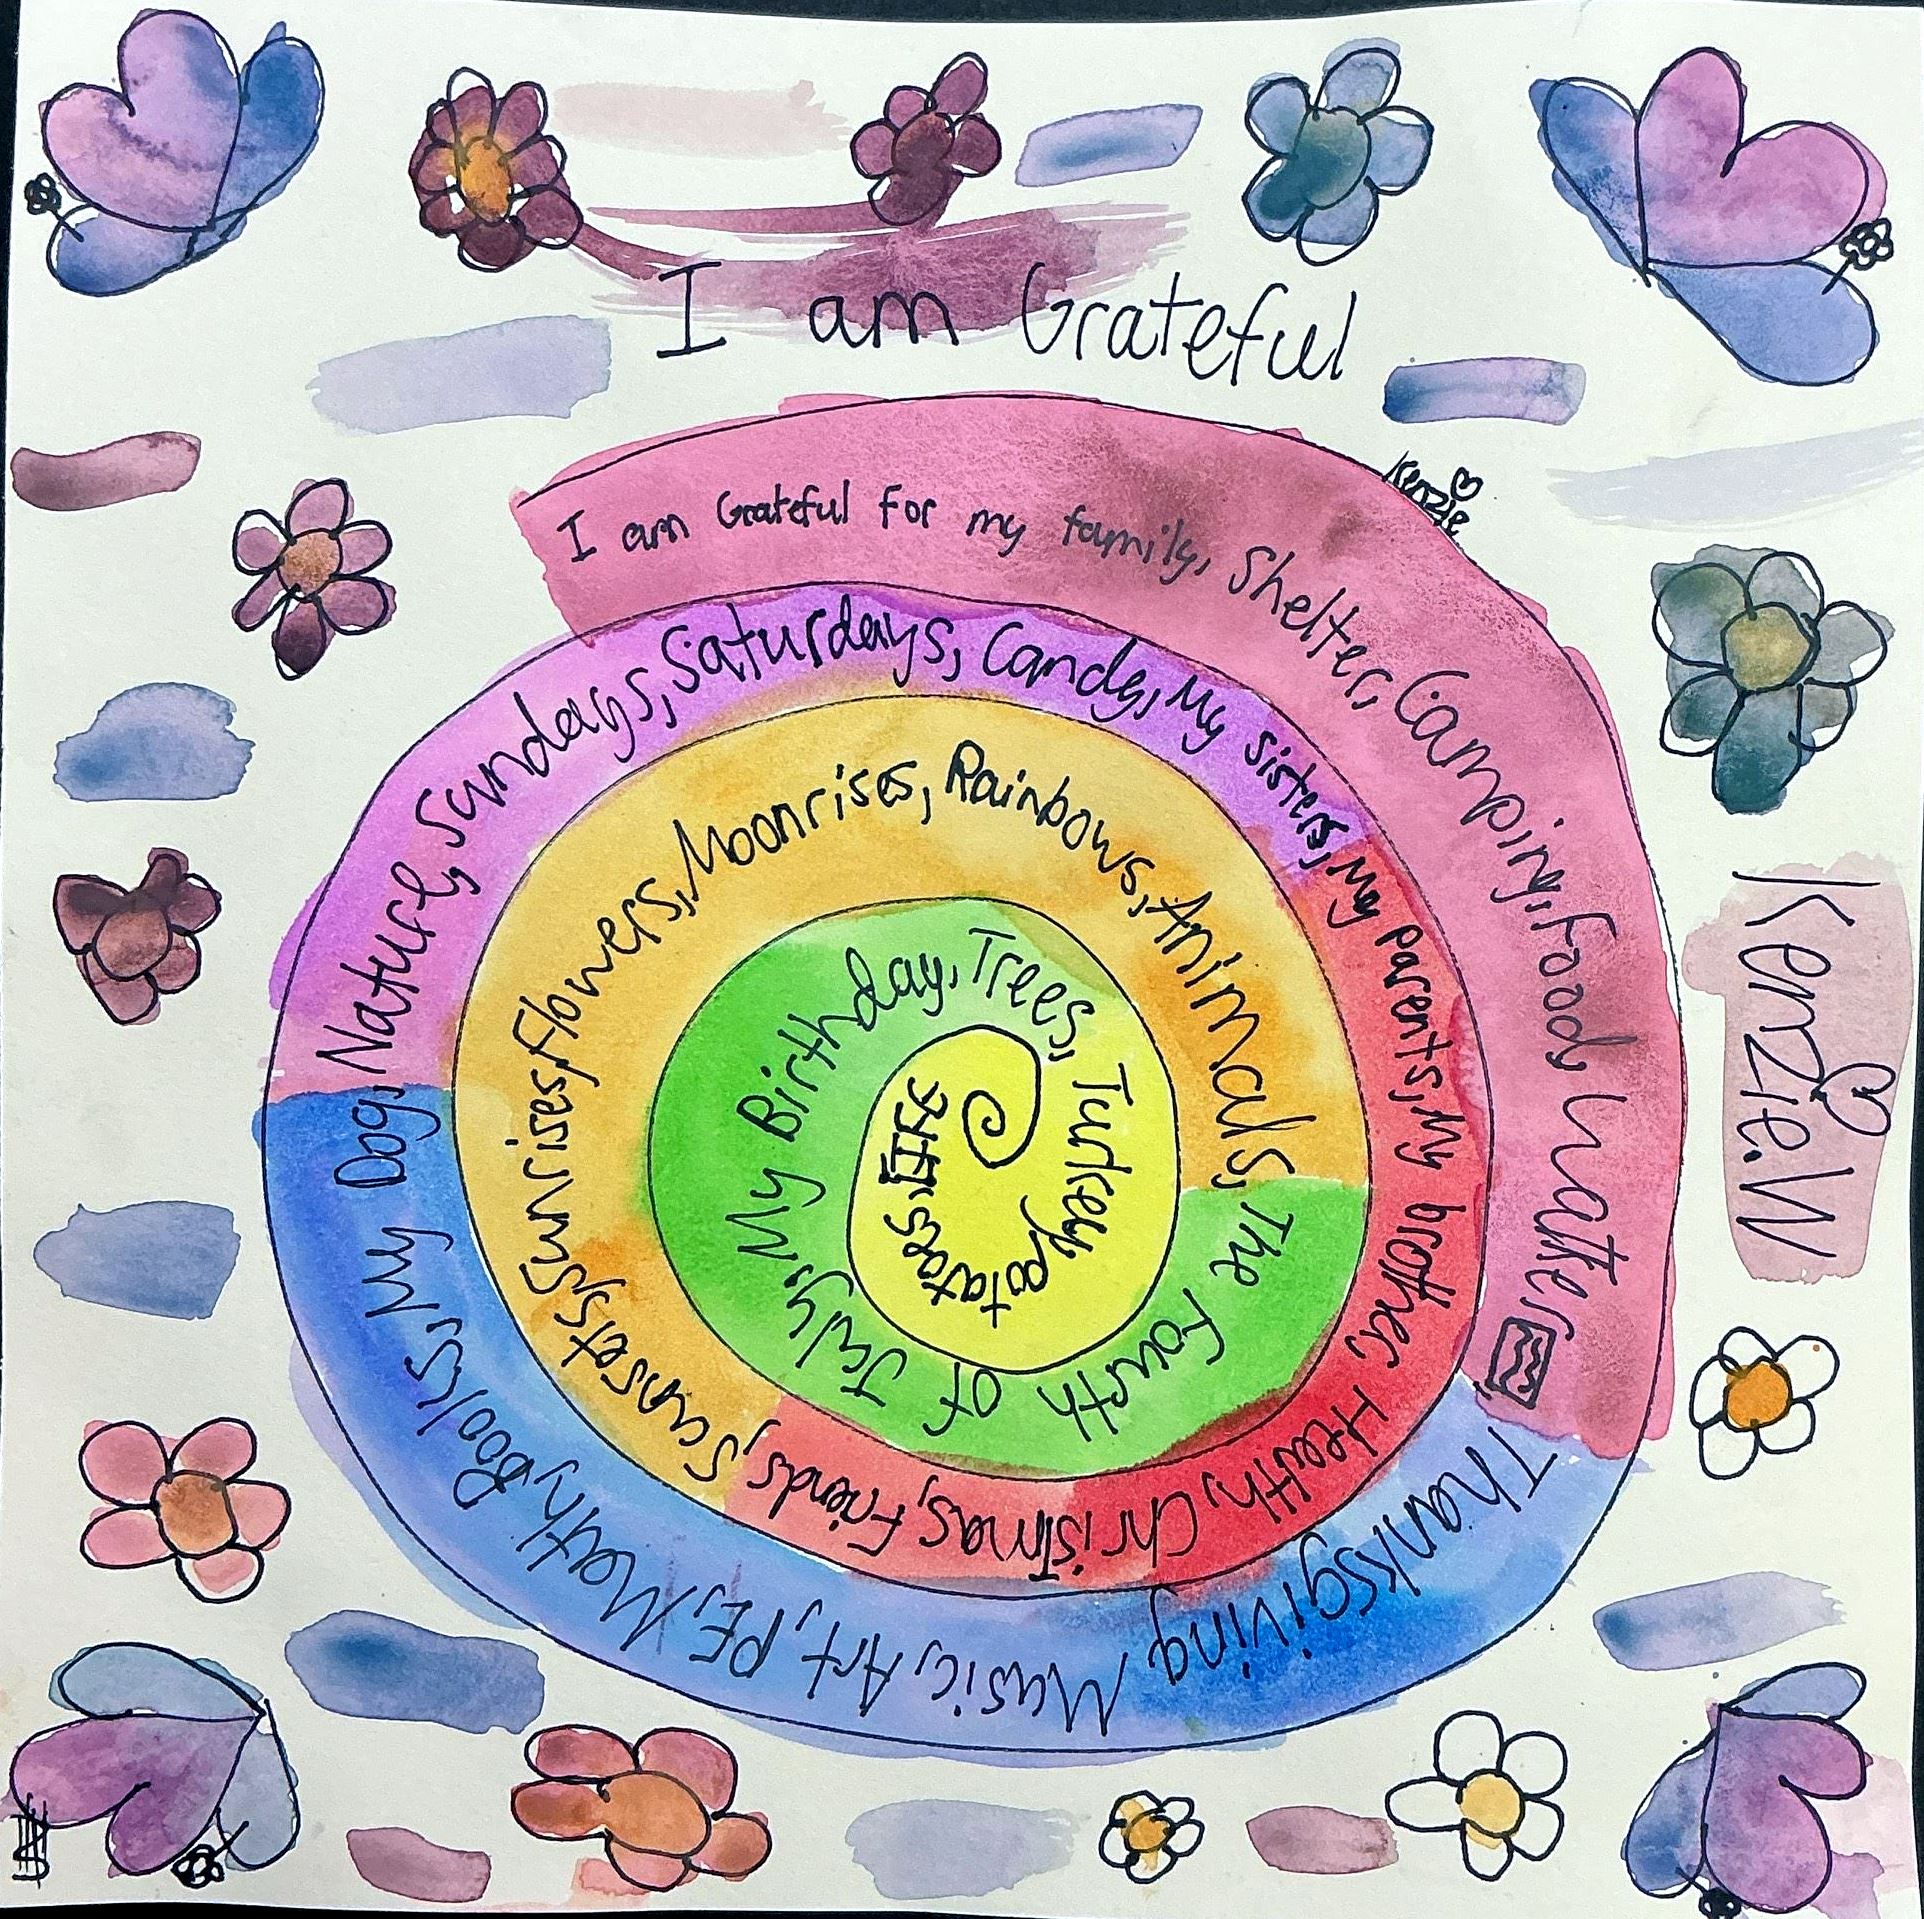 I am Grateful
Kenzie
I am Grateful for my family, Shelter, Camping, Food, Water,
Thanksgiving Music, Art, PE, Math, Books, My Dog, Nature, Sundays, Saturdays, Candy, My sisters, My parents, My brother, Health, Christmas, Friends, Sunsets, Sunrises, Flowers, Moonrises, Rainbows, Animals, The Fourth of July, My Birthday, Trees, Turkey, potatoes,
Kenzie.W